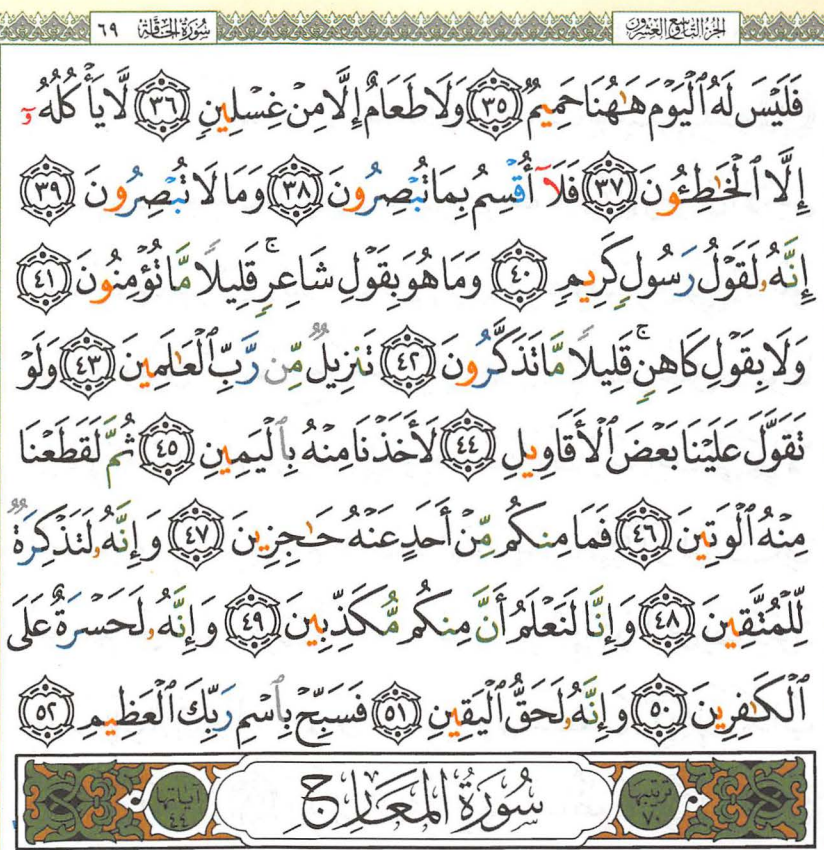 الجزء التاسع والعشرون سورة الحاقة ٦٩
فَلَيْسَ لَهُ ٱلْيَوْمَ هَٰهُنَا حَمِيمٌ ٣٥ وَلَا طَعَامٌ إِلَّا مِنْ غِسْلِينٍ ٣٦ لَّا يَأْكُلُهُۥٓ
إِلَّا ٱلْخَٰطِـُٔونَ ٣٧ فَلَآ أُقْسِمُ بِمَا تُبْصِرُونَ ٣٨ وَمَا لَا تُبْصِرُونَ ٣٩
إِنَّهُۥ لَقَوْلُ رَسُولٍ كَرِيمٍ ٤٠ وَمَا هُوَ بِقَوْلِ شَاعِرٍ ۚ قَلِيلًا مَّا تُؤْمِنُونَ ٤١
وَلَا بِقَوْلِ كَاهِنٍ ۚ قَلِيلًا مَّا تَذَكَّرُونَ ٤٢ تَنزِيلٌ مِّن رَّبِّ ٱلْعَٰلَمِينَ ٤٣ وَلَوْ
تَقَوَّلَ عَلَيْنَا بَعْضَ ٱلْأَقَاوِيلِ ٤٤ لَأَخَذْنَا مِنْهُ بِٱلْيَمِينِ ٤٥ ثُمَّ لَقَطَعْنَا
مِنْهُ ٱلْوَتِينَ ٤٦ فَمَا مِنكُم مِّنْ أَحَدٍ عَنْهُ حَٰجِزِينَ ٤٧ وَإِنَّهُۥ لَتَذْكِرَةٌ
لِّلْمُتَّقِينَ ٤٨ وَإِنَّا لَنَعْلَمُ أَنَّ مِنكُم مُّكَذِّبِينَ ٤٩ وَإِنَّهُۥ لَحَسْرَةٌ عَلَى
ٱلْكَٰفِرِينَ ٥٠ وَإِنَّهُۥ لَحَقُّ ٱلْيَقِينِ ٥١ فَسَبِّحْ بِٱسْمِ رَبِّكَ ٱلْعَظِيمِ ٥٢
ترتيبها ٧٠ سُورَةُ المَعَارِج آياتها ٤٤